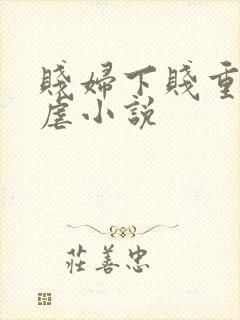 賤婦下賤重
虐小説
莊善忠